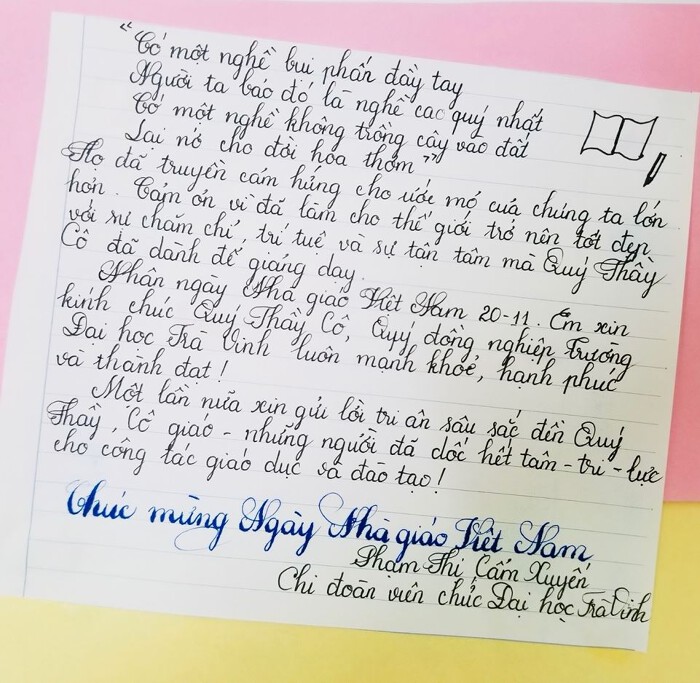 “Có một nghề bụi phấn đầy tay
Người ta bảo đó là nghề cao quý nhất
Có một nghề không trồng cây vào đất
Lại nở cho đời hoa thơm”
Họ đã truyền cảm hứng cho ước mơ của chúng ta lớn
hơn. Cảm ơn vì đã làm cho thế giới trở nên tốt đẹp
với sự chăm chỉ, trí tuệ và sự tận tâm mà Quý Thầy
Cô đã dành để giảng dạy.
Nhân ngày Nhà giáo Việt Nam 20-11. Em xin
kính chúc Quý Thầy Cô, Quý đồng nghiệp Trường
Đại học Trà Vinh luôn mạnh khoẻ, hạnh phúc
và thành đạt!
Một lần nữa xin gửi lời tri ân sâu sắc đến Quý
Thầy, Cô giáo - những người đã dốc hết tâm - trí - lực
cho công tác giáo dục và đào tạo!
Chúc mừng Ngày Nhà giáo Việt Nam
Phạm Thị Cẩm Xuyến
Chi đoàn viên chức Đại học Trà Vinh